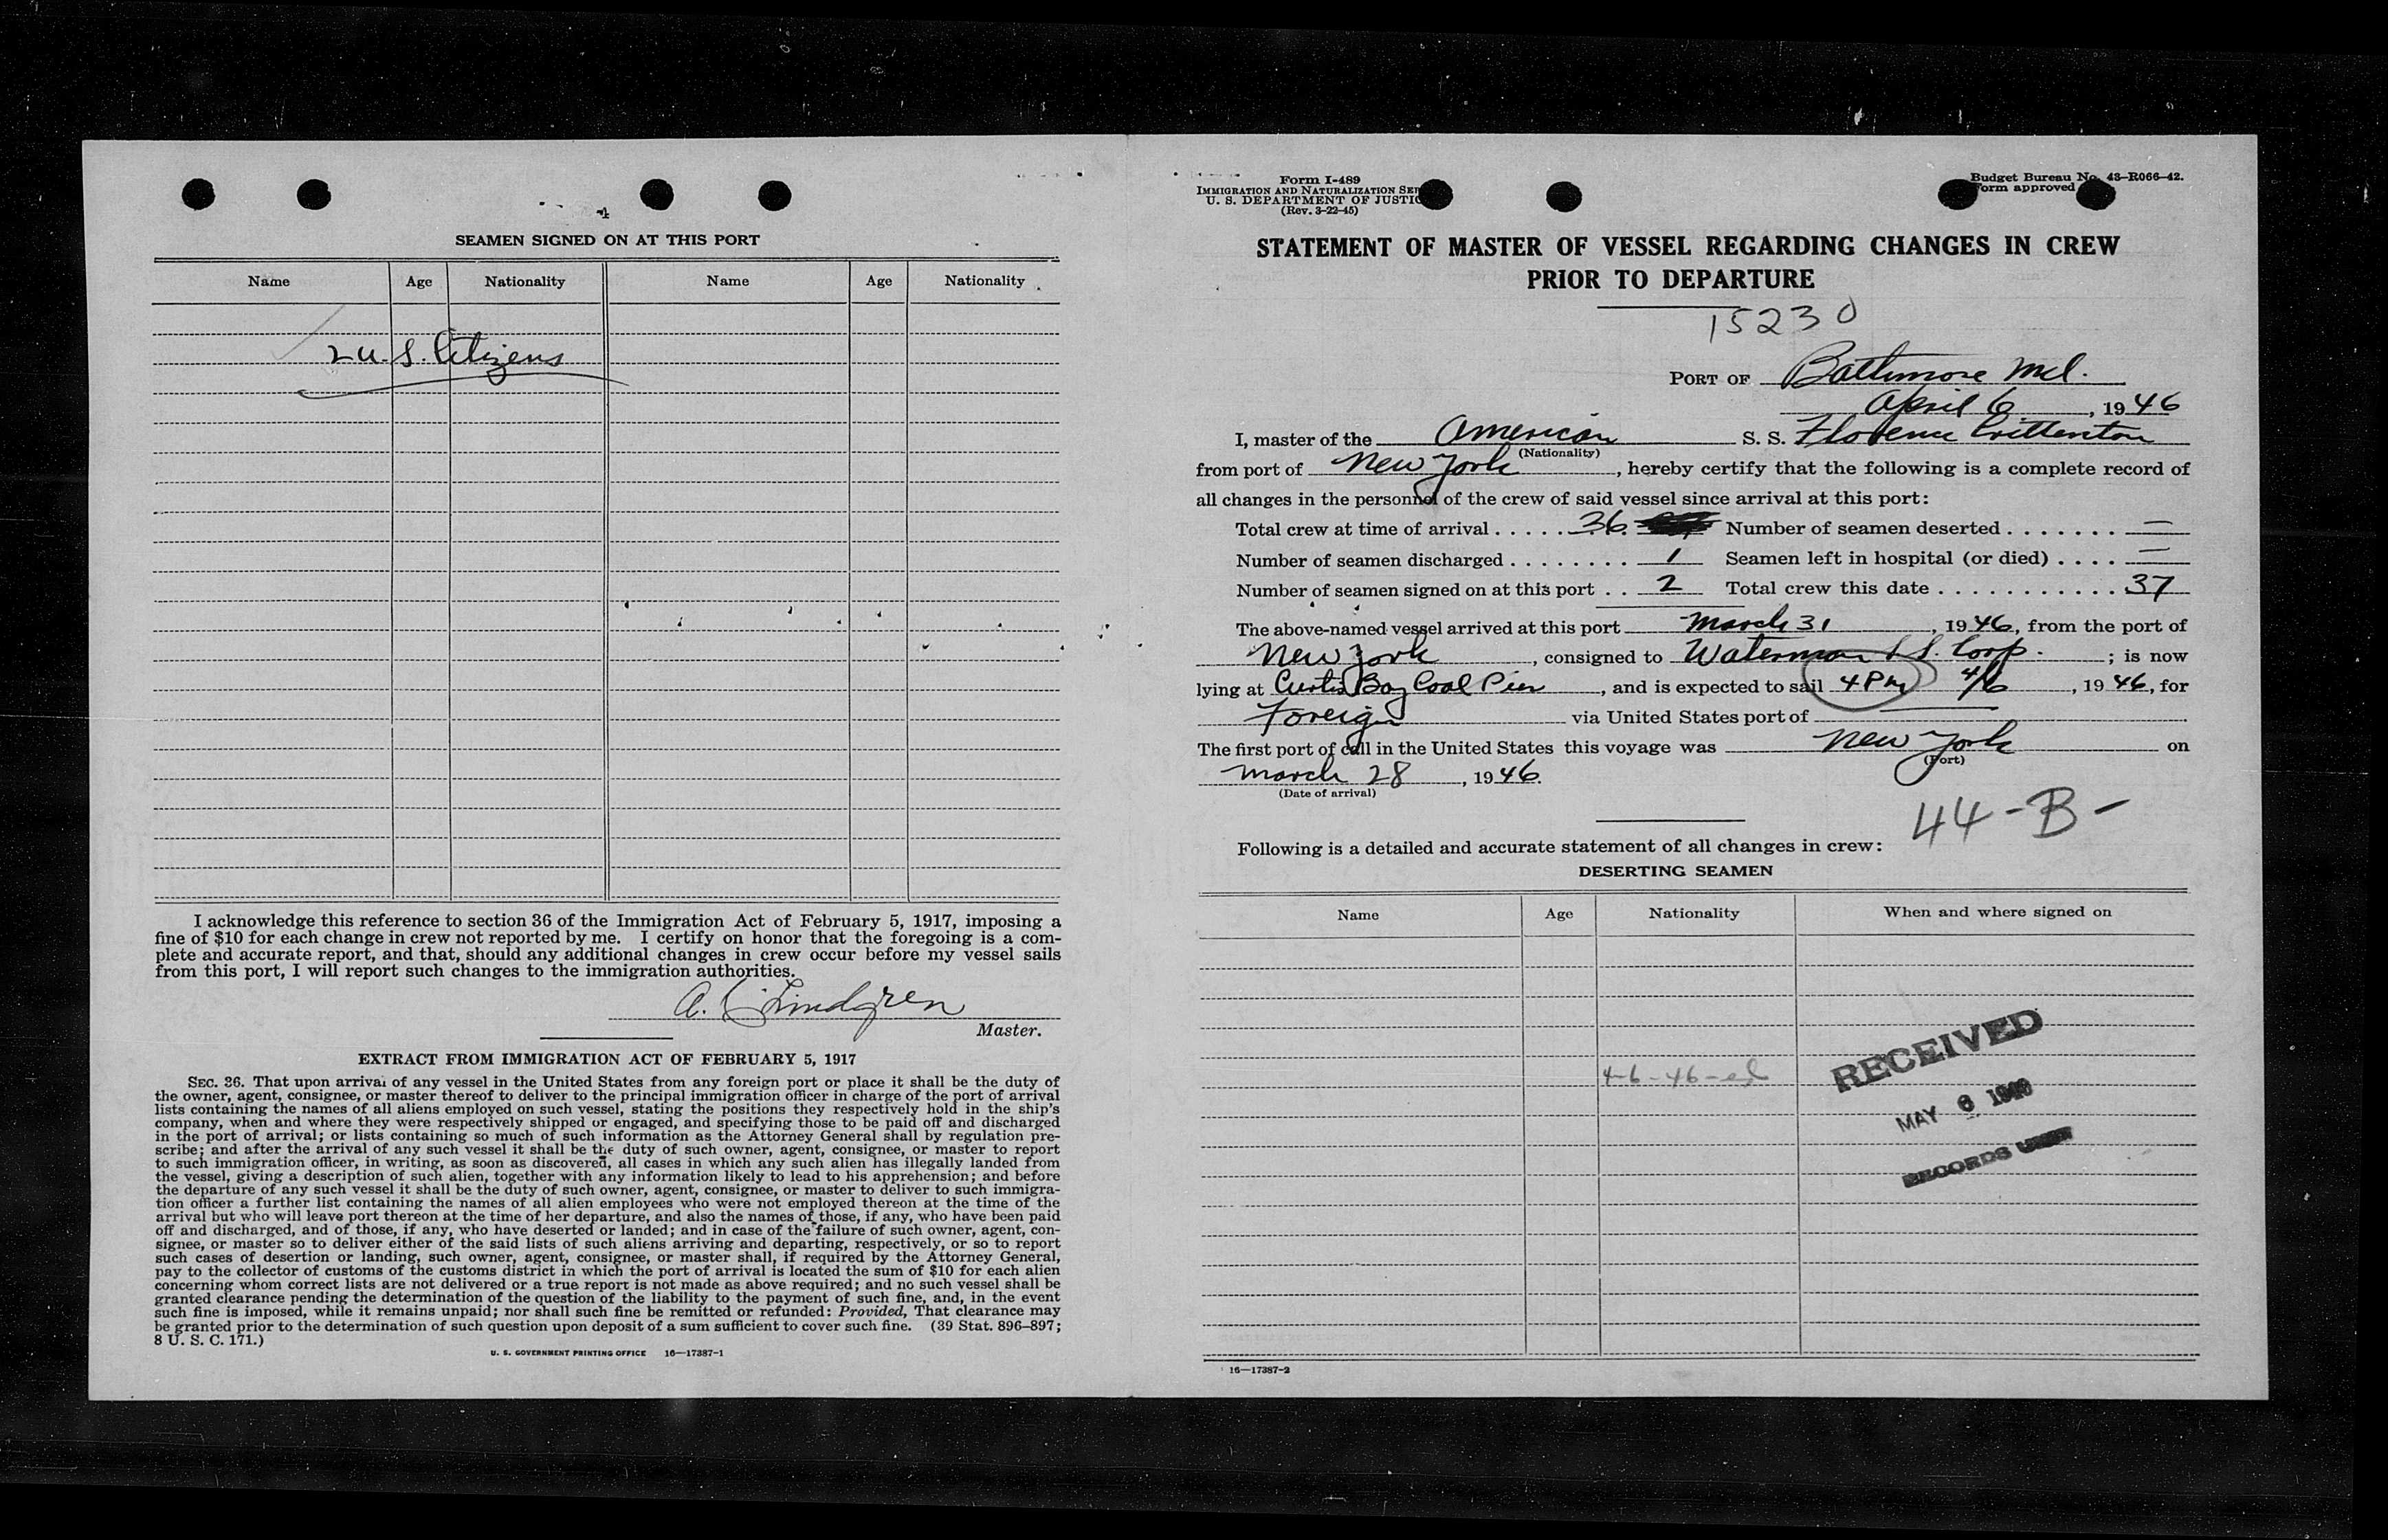 SEAMEN SIGNED ON AT THIS PORT
Name Age Nationality Name Age Nationality
2 U.S. Citizens
I acknowledge this reference to section 36 of the Immigration Act of February 5, 1917, imposing a
fine of $10 for each change in crew not reported by me. I certify on honor that the foregoing is a com-
plete and accurate report, and that, should any additional changes in crew occur before my vessel sails
from this port, I will report such changes to the immigration authorities.
A. C. Lindgren
Master.
EXTRACT FROM IMMIGRATION ACT OF FEBRUARY 5, 1917
SEC. 36. That upon arrival of any vessel in the United States from any foreign port or place it shall be the duty of
the owner, agent, consignee, or master thereof to deliver to the principal immigration officer in charge of the port of arrival
lists containing the names of all aliens employed on such vessel, stating the positions they respectively hold in the ship's
company, when and where they were respectively shipped or engaged, and specifying those to be paid off and discharged
in the port of arrival; or lists containing so much of such information as the Attorney General shall by regulation pre-
scribe; and after the arrival of any such vessel it shall be the duty of such owner, agent, consignee, or master to report
to such immigration officer, in writing, as soon as discovered, all cases in which any such alien has illegally landed from
the vessel, giving a description of such alien, together with any information likely to lead to his apprehension; and before
the departure of any such vessel it shall be the duty of such owner, agent, consignee, or master to deliver to such immigra-
tion officer a further list containing the names of all alien employees who were not employed thereon at the time of the
arrival but who will leave port thereon at the time of her departure, and also the names of those, if any, who have been paid
off and discharged, and of those, if any, who have deserted or landed; and in case of the failure of such owner, agent, con-
signee, or master so to deliver either of the said lists of such aliens arriving and departing, respectively, or so to report
such cases of desertion or landing, such owner, agent, consignee, or master shall, if required by the Attorney General,
pay to the collector of customs of the customs district in which the port of arrival is located the sum of $10 for each alien
concerning whom correct lists are not delivered or a true report is not made as above required; and no such vessel shall be
granted clearance pending the determination of the question of the liability to the payment of such fine, and, in the event
such fine is imposed, while it remains unpaid; nor shall such fine be remitted or refunded: Provided, That clearance may
be granted prior to the determination of such question upon deposit of a sum sufficient to cover such fine. (39 Stat. 896–897;
8 U. S. C. 171.)
U. S. GOVERNMENT PRINTING OFFICE 16—17387-1
Form I-489
IMMIGRATION AND NATURALIZATION SER
U. S. DEPARTMENT OF JUSTIC
(Rev. 3-22-45)
Budget Bureau No. 43-R066-42.
Form approved
STATEMENT OF MASTER OF VESSEL REGARDING CHANGES IN CREW
PRIOR TO DEPARTURE
15230
PORT OF Baltimore Md.
April 6, 1946
I, master of the American S. S. Florence Crittenton
(Nationality)
from port of New York, hereby certify that the following is a complete record of
all changes in the personnel of the crew of said vessel since arrival at this port:
Total crew at time of arrival ..... 36 Number of seamen deserted ....... —
Number of seamen discharged ........ 1 Seamen left in hospital (or died) .... —
Number of seamen signed on at this port .. 2 Total crew this date ........... 37
The above-named vessel arrived at this port March 31, 1946, from the port of
New York, consigned to Waterman S.S. Corp.; is now
lying at Curtis Bay Coal Pier, and is expected to sail 4 PM 4/6, 1946, for
Foreign via United States port of
The first port of call in the United States this voyage was New York on
(Port)
March 28, 1946.
(Date of arrival)
44-B-
Following is a detailed and accurate statement of all changes in crew:
DESERTING SEAMEN
Name Age Nationality When and where signed on
4-6-46-
RECEIVED
MAY 6 1946
RECORDS
16—17387-2